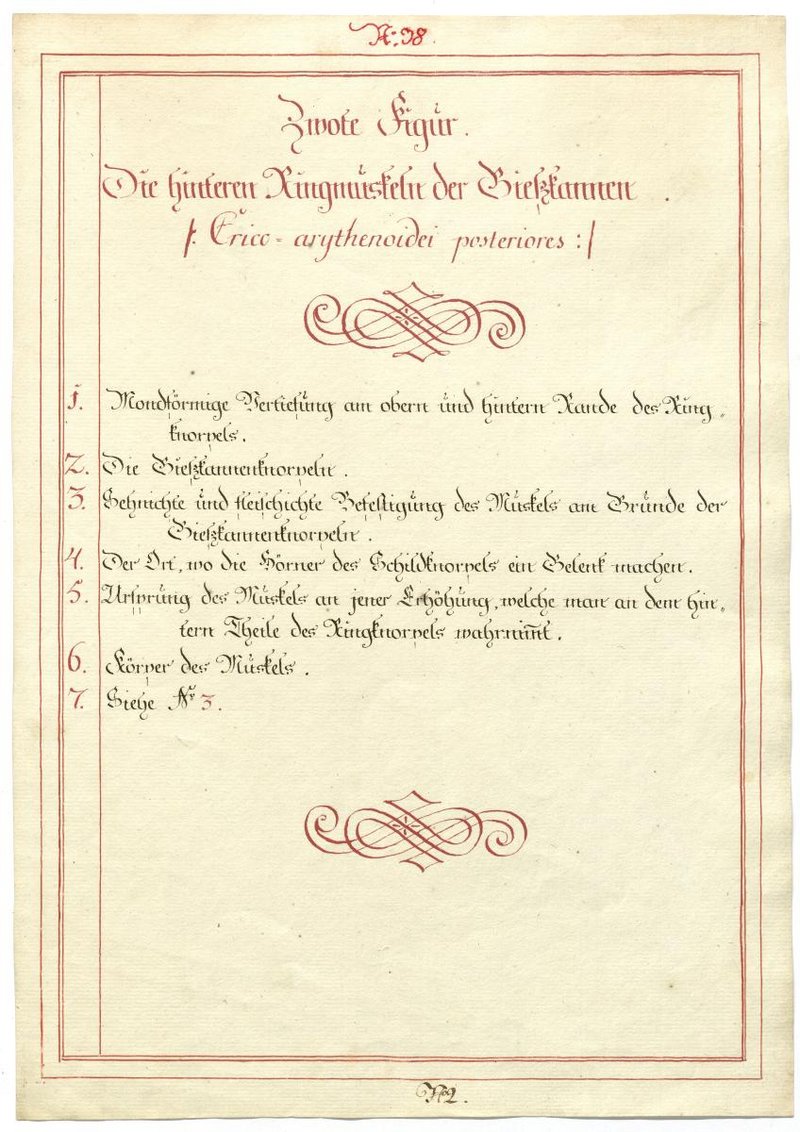 N: 38.
Zwote Figur.
Die hinteren Ringmuskeln der Gießkannen.
/: Crico-arythenoidei posteriores :/
1. Mondförmige Vertiefung am obern und hintern Rande des Ring-
knorpels.
2. Die Gießkannenknorpeln.
3. Sehnichte und fleischichte Befestigung des Muskels am Grunde der
Gießkannenknorpeln.
4. Der Ort, wo die Hörner des Schildknorpels ein Gelenk machen.
5. Ursprung des Muskels an jener Erhöhung, welche man an dem hin-
tern Theile des Ringknorpels wahrnim̄t.
6. Körper des Muskels.
7. Siehe Nr 3.